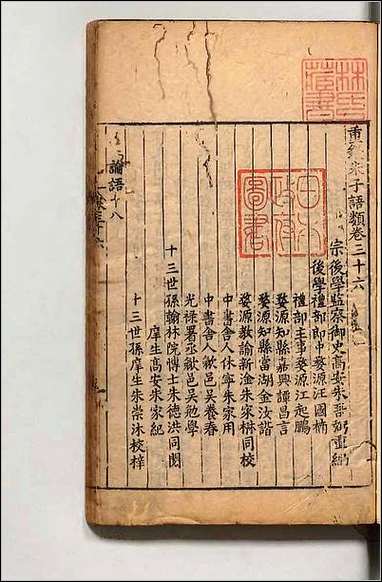 林氏藏書
重 朱子語類卷三十六
宗後學監察御史高安朱吾弼重編
後學禮部郎中婺源汪國楠
禮部主事婺源江起鵬
婺源知縣嘉興譚昌言
婺源知縣當湖金汝諧
婺源教諭新淦朱家楙同校
中書舍人休寧朱家用
中書舍人歙邑吳養春
光祿署丞歙邑吳勉學
十三世孫翰林院博士朱德洪同閱
庠生高安朱家紀
十三世孫庠生朱崇沐校梓
論語十八
圖書